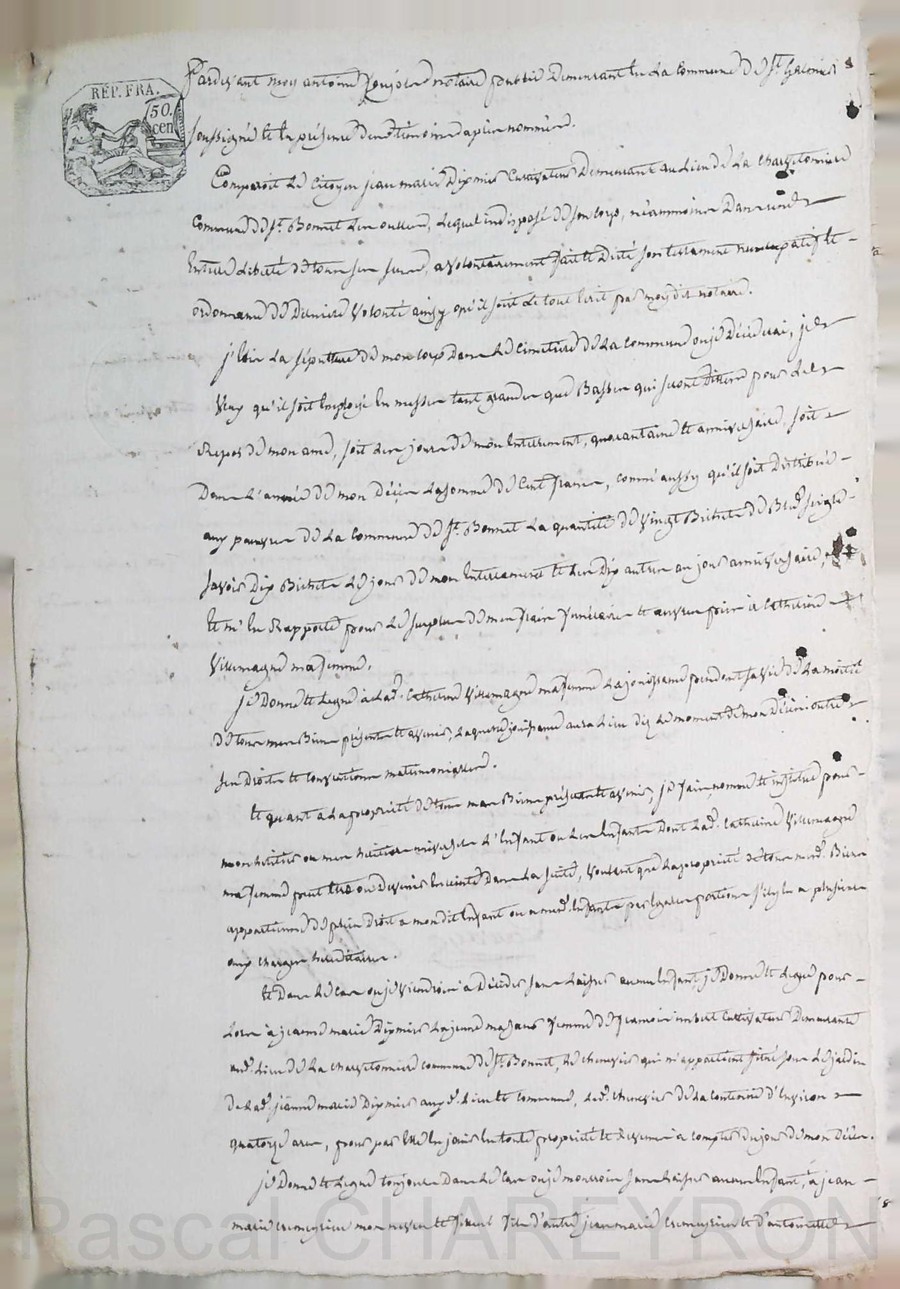 RÉP. FRA.
50.
cen
Pardevant moy antoine notaire public Demeurant En La Commune De St Galmier
soussigné Et En présence Des témoins cy après nommés.
Comparoit Le Citoyen jean marie Dupuis Cultivateur Demeurant au Lieu De La
Commune De St. Bonnet Les oulles, Lequel indisposé De son Corps, néammoins Dans une
Entière Liberté De tous ses sens, a volontairement fait Et Dicté son testament nuncupatif Et
ordonnance De Dernière Volonté ainsy qu'il suit Le tout Ecrit par moy dit notaire.
j'Elis La sépulture De mon corps Dans Le Cimetière De La Commune ou je Décederai, je
Veux qu'il soit Employé En messes tant grandes que Basses qui seront Dittes pour Le
Repos De mon ame, soit Les jours De mon Enterrement, quarantaine Et anniversaire, soit
Dans L'année De mon Décès La somme De Cent francs, comme aussy qu'il soit Distribué
aux pauvres De La Commune De St. Bonnet La quantité De Vingt Bichets De Bled seigle
savoir Dix Bichets Le jour De mon Enterrement Et Les Dix autres au jour anniversaire,
Et m'En Rapporte pour Le surplus De mes frais funéraires Et œuvres pies à Catherine
Villemagne ma femme.
je Donne Et Legue à Lad. Catherine Villemagne ma femme La jouissance pendant sa vie De La moitié
De tous mes Biens présents Et avenir, Laquelle jouissance aura Lieu dez Le moment De mon Décès outre
ses Droits Et Conventions matrimoniales.
Et quant a La propriété De tous mes Biens présents Et avenir, je fais, nomme Et institue pour
mon héritier ou mes héritiers universels L'Enfant ou Les Enfants Dont Lad. Catherine Villemagne
ma femme peut Etre ou Devenir Enceinte Dans La suite, Voulant que La propriété De tous mesd. Biens
appartienne De plein Droit a mon dit Enfant ou a mesd. Enfants par Egales portions s'il y En a plusieurs
aux charges héréditaires.
Et Dans Le Cas ou je Viendrois a Décéder sans Laisser aucun Enfant, je Donne Et Legue pour
Lors à jeanne marie Dupuis La jeune ma sœur femme De imbert Cultivateur Demeurant
aud. Lieu De La commune De St. Bonnet, Le chenevier qui m'appartient situé sous Le jardin
De Lad. jeanne marie Dupuis auxd. Lieu Et commune, Led. chenevier De La Contenue D'Environ
quatorze ares, pour par Elle En jouir En toute propriété Et revenus à compter du jour De mon Décès.
je Donne Et Legue toujours Dans Le Cas ou je mourrois sans Laisser aucun Enfant, à jean
marie mon neveu Et filleul fils D'autre jean marie Et D'antoinette
Pascal CHAREYRON